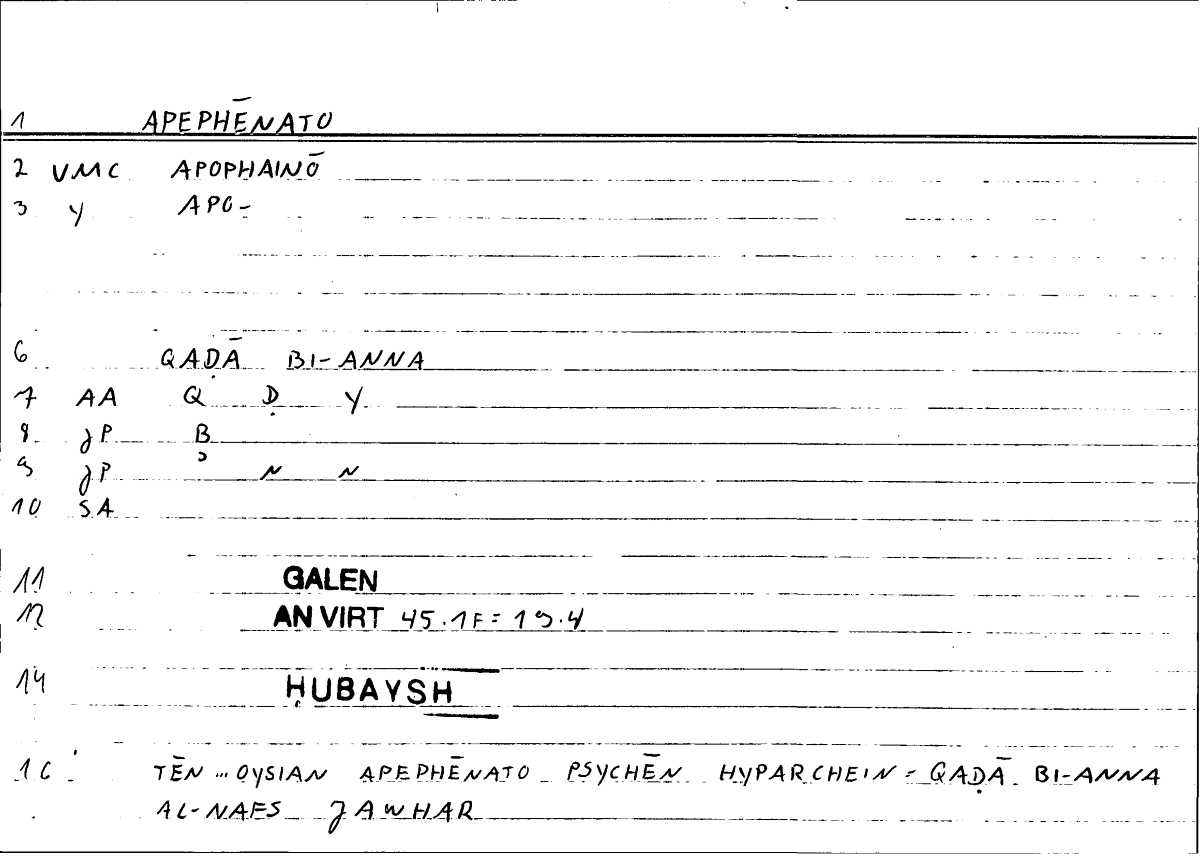 1 APEPHĒNATO
2 VMC APOPHAINŌ
3 Y APO-
6 QAḌĀ BI-ANNA
7 AA Q Ḍ Y
8 JP B
9 JP ʾ N N
10 SA
11 GALEN
12 AN VIRT 45.1F = 19.4
14 ḤUBAYSH
16 TĒN ... OYSIAN APEPHĒNATO PSYCHĒN HYPARCHEIN = QAḌĀ BI-ANNA
AL-NAFS JAWHAR